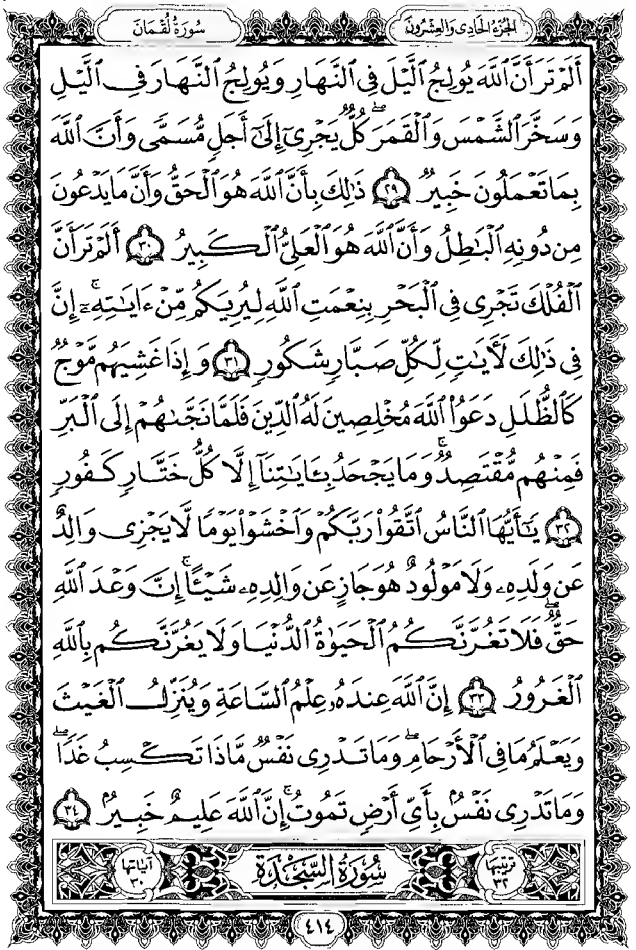 الجزء الحادى والعشرون
سورة لقمان
أَلَمْ تَرَ أَنَّ ٱللَّهَ يُولِجُ ٱلَّيْلَ فِى ٱلنَّهَارِ وَيُولِجُ ٱلنَّهَارَ فِى ٱلَّيْلِ
وَسَخَّرَ ٱلشَّمْسَ وَٱلْقَمَرَۖ كُلٌّ يَجْرِىٓ إِلَىٰٓ أَجَلٍ مُّسَمًّى وَأَنَّ ٱللَّهَ
بِمَا تَعْمَلُونَ خَبِيرٌ ٢٩ ذَٰلِكَ بِأَنَّ ٱللَّهَ هُوَ ٱلْحَقُّ وَأَنَّ مَا يَدْعُونَ
مِن دُونِهِ ٱلْبَٰطِلُ وَأَنَّ ٱللَّهَ هُوَ ٱلْعَلِىُّ ٱلْكَبِيرُ ٣٠ أَلَمْ تَرَ أَنَّ
ٱلْفُلْكَ تَجْرِى فِى ٱلْبَحْرِ بِنِعْمَتِ ٱللَّهِ لِيُرِيَكُم مِّنْ ءَايَٰتِهِۦٓۚ إِنَّ
فِى ذَٰلِكَ لَأَيَٰتٍ لِّكُلِّ صَبَّارٍ شَكُورٍ ٣١ وَإِذَا غَشِيَهُم مَّوْجٌ
كَٱلظُّلَلِ دَعَوُا۟ ٱللَّهَ مُخْلِصِينَ لَهُ ٱلدِّينَ فَلَمَّا نَجَّىٰهُمْ إِلَى ٱلْبَرِّ
فَمِنْهُم مُّقْتَصِدٌۚ وَمَا يَجْحَدُ بِـَٔايَٰتِنَآ إِلَّا كُلُّ خَتَّارٍ كَفُورٍ
٣٢ يَٰٓأَيُّهَا ٱلنَّاسُ ٱتَّقُوا۟ رَبَّكُمْ وَٱخْشَوْا۟ يَوْمًا لَّا يَجْزِى وَالِدٌ
عَن وَلَدِهِۦ وَلَا مَوْلُودٌ هُوَ جَازٍ عَن وَالِدِهِۦ شَيْـًٔاۚ إِنَّ وَعْدَ ٱللَّهِ
حَقٌّۖ فَلَا تَغُرَّنَّكُمُ ٱلْحَيَوٰةُ ٱلدُّنْيَا وَلَا يَغُرَّنَّكُم بِٱللَّهِ
ٱلْغَرُورُ ٣٣ إِنَّ ٱللَّهَ عِندَهُۥ عِلْمُ ٱلسَّاعَةِ وَيُنَزِّلُ ٱلْغَيْثَ
وَيَعْلَمُ مَا فِى ٱلْأَرْحَامِۖ وَمَا تَدْرِى نَفْسٌ مَّاذَا تَكْسِبُ غَدًاۖ
وَمَا تَدْرِى نَفْسٌۢ بِأَىِّ أَرْضٍ تَمُوتُۚ إِنَّ ٱللَّهَ عَلِيمٌ خَبِيرٌۢ ٣٤
ترتيبها ٣٢
سُورَةُ السَّجْدَةِ
آياتها ٣٠
٤١٤